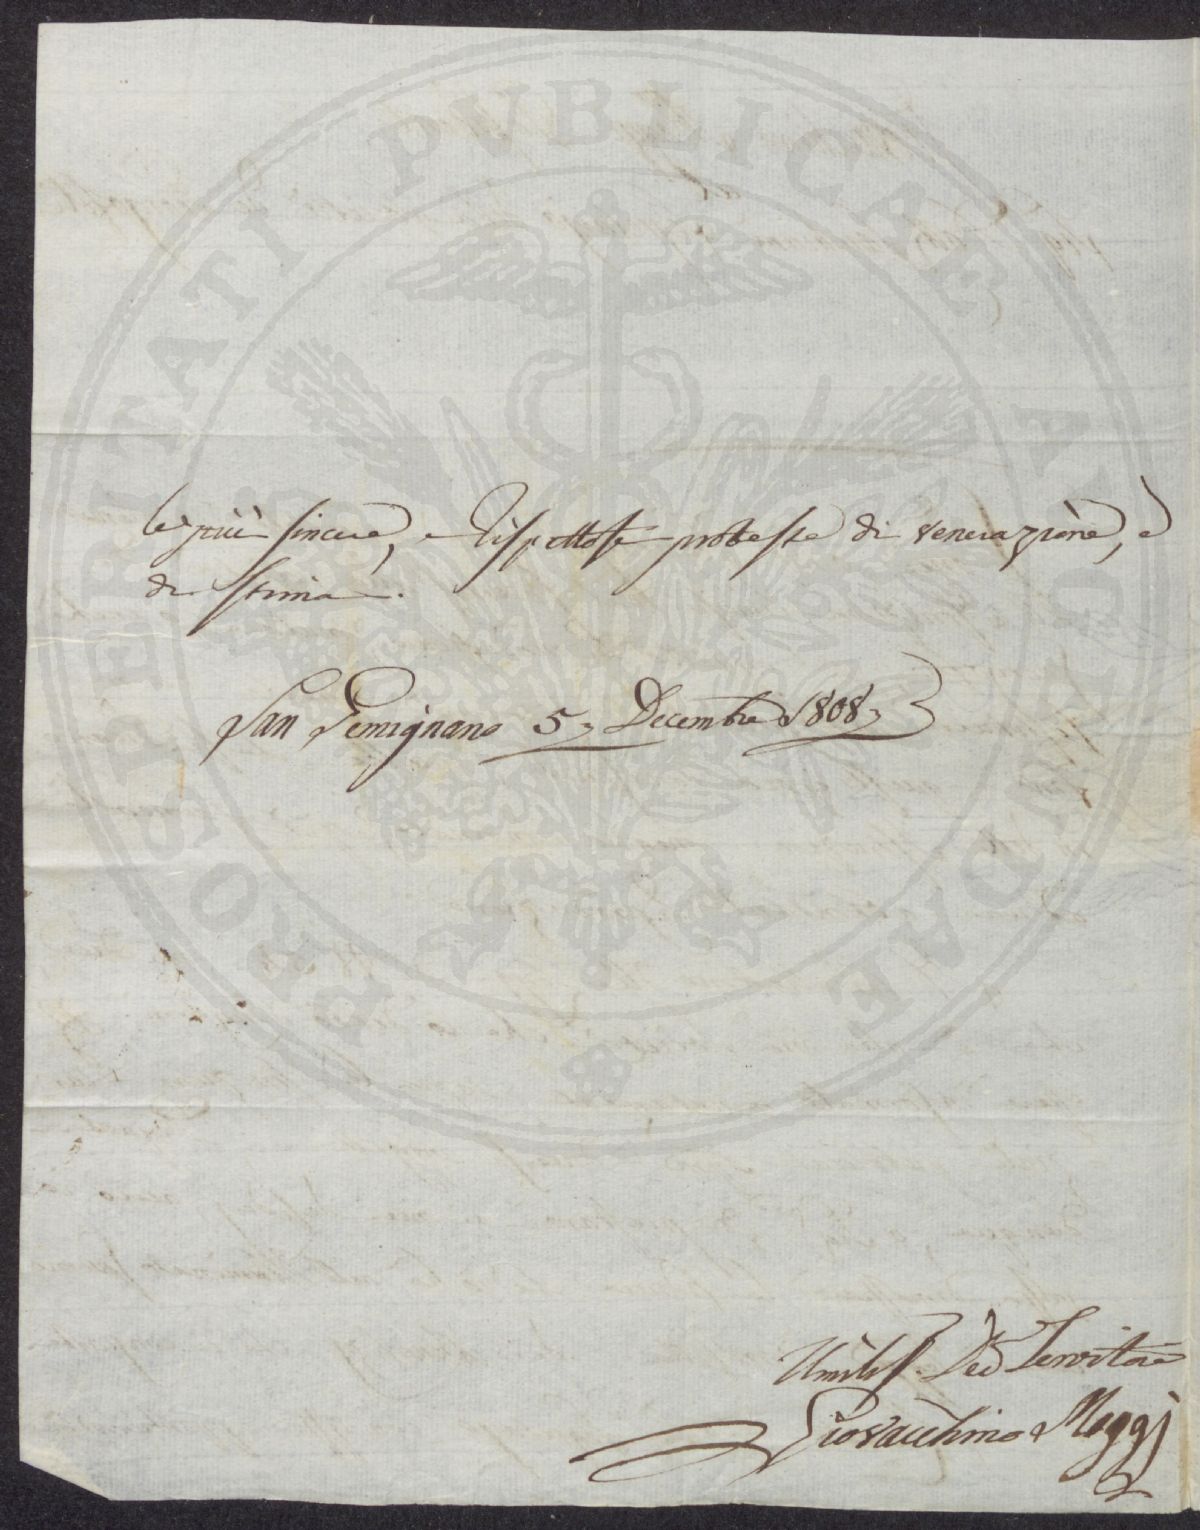 le più sincere, e rispettose proteste di venerazione, e
di stima.
San Gemignano 5 Decembre 1808
Umiliss. Dev Servitore
Giovacchino Maggi
PROSPERITATI PVBLICAE AVGENDAE